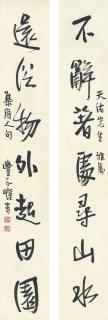 不辭著處尋山水
天佑先生 雅屬
還從物外起田園
集唐人句 豐子愷書